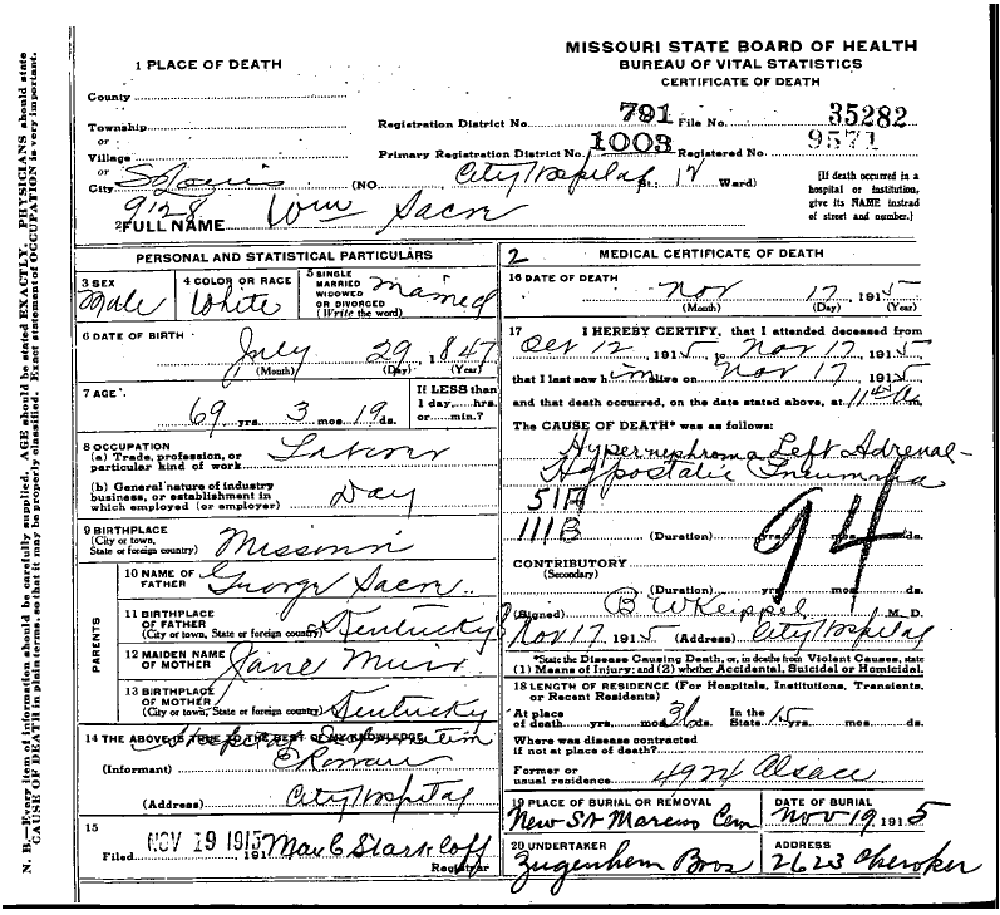 N. B.—Every item of information should be carefully supplied. AGE should be stated EXACTLY. PHYSICIANS should state
CAUSE OF DEATH in plain terms, so that it may be properly classified. Exact statement of OCCUPATION is very important.
MISSOURI STATE BOARD OF HEALTH
BUREAU OF VITAL STATISTICS
CERTIFICATE OF DEATH
1 PLACE OF DEATH
County
Township
or
Village
or
City St Louis (NO. City Hospital St. 12 Ward)
Registration District No. 791 File No. 35282
Primary Registration District No. 1003 Registered No. 9571
[If death occurred in a
hospital or institution,
give its NAME instead
of street and number.]
9128
2 FULL NAME Wm Sacn
PERSONAL AND STATISTICAL PARTICULARS
3 SEX
Male
4 COLOR OR RACE
White
5 SINGLE
MARRIED
WIDOWED
OR DIVORCED
(Write the word)
Married
6 DATE OF BIRTH
July 29, 1847
(Month) (Day) (Year)
7 AGE
69 yrs. 3 mos. 19 ds.
If LESS than
1 day,....hrs.
or....min.?
8 OCCUPATION
(a) Trade, profession, or
particular kind of work Labor
(b) General nature of industry
business, or establishment in
which employed (or employer) Day
9 BIRTHPLACE
(City or town,
State or foreign country) Missouri
PARENTS
10 NAME OF
FATHER George Sacn
11 BIRTHPLACE
OF FATHER
(City or town, State or foreign country) Kentucky
12 MAIDEN NAME
OF MOTHER Jane Muir
13 BIRTHPLACE
OF MOTHER
(City or town, State or foreign country) Kentucky
14 THE ABOVE IS TRUE TO THE BEST OF MY KNOWLEDGE
Hospital Information
(Informant)
(Address) City Hospital
15
Filed NOV 19 1915, 191 Max C Starkloff
Registrar
2 MEDICAL CERTIFICATE OF DEATH
16 DATE OF DEATH
Nov 17, 1915
(Month) (Day) (Year)
17 I HEREBY CERTIFY, that I attended deceased from
Oct 12, 1915, to Nov 17, 1915
that I last saw him alive on Nov 17, 1915
and that death occurred, on the date stated above, at 11
The CAUSE OF DEATH* was as follows:
Hypernephroma Left Adrenal-
Hypostatic Pneumonia
51A
111B
94
(Duration) yrs. mos. ds.
CONTRIBUTORY
(Secondary)
(Duration) yrs. mos. ds.
(Signed) B W Keippel, M. D.
Nov 17 1915 (Address) City Hospital
*State the Disease Causing Death, or, in deaths from Violent Causes, state
(1) Means of Injury; and (2) whether Accidental, Suicidal or Homicidal.
18 LENGTH OF RESIDENCE (For Hospitals, Institutions, Transients,
or Recent Residents)
At place
of death yrs. mos. 36 ds. In the
State 15 yrs. mos. ds.
Where was disease contracted
if not at place of death?
Former or
usual residence 4924 Alsace
19 PLACE OF BURIAL OR REMOVAL
New St Marcus Cem
DATE OF BURIAL
Nov 19, 1915
20 UNDERTAKER
Zugenhein Bros
ADDRESS
2623 Cherokee